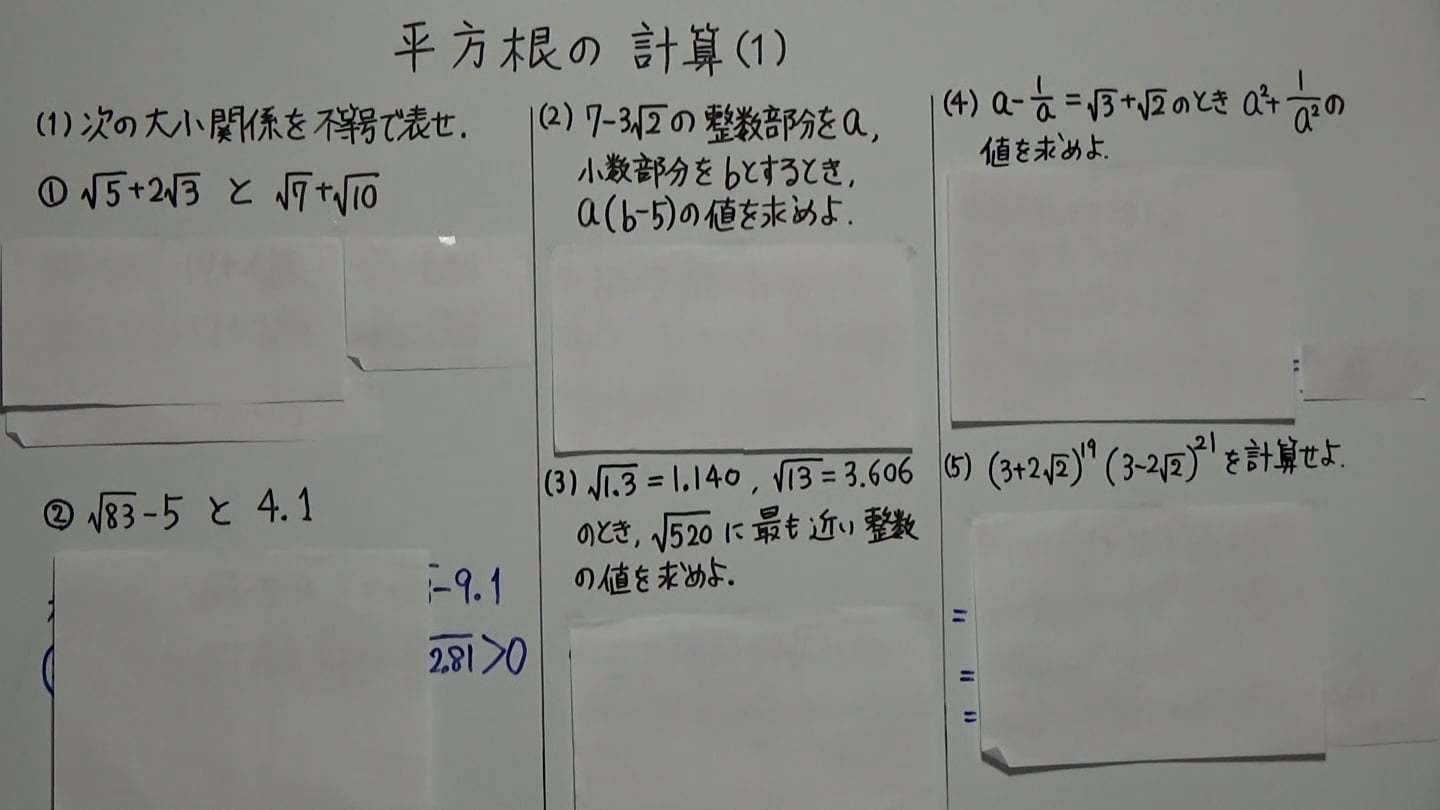 平方根の計算(1)
(1) 次の大小関係を不等号で表せ.
① √5+2√3 と √7+√10
② √83-5 と 4.1
-9.1
2.81>0
(2) 7-3√2の整数部分をa,
小数部分をbとするとき,
a(b-5)の値を求めよ.
(3) √1.3=1.140, √13=3.606
のとき, √520に最も近い整数
の値を求めよ.
(4) a-1/a=√3+√2のとき a²+1/a²の
値を求めよ.
=
(5) (3+2√2)¹⁹(3-2√2)²¹を計算せよ.
=
=
=